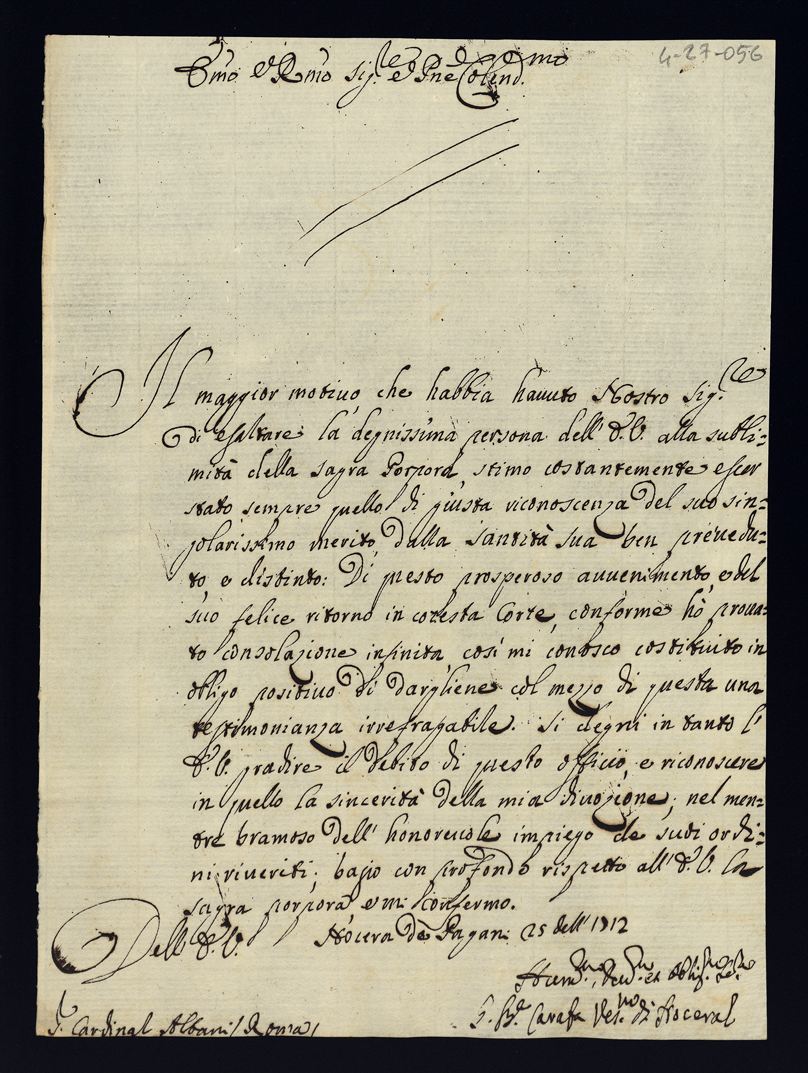 4-27-056
Emo e Rmo Sig.re e Pne Colend.mo
Il maggior motivo che habbia havuto Nostro Sig.re
di esaltare la degnissima persona dell' E.V. alla subli=
mità della sagra Porpora, stimo costantemente esser
stato sempre quello di giusta riconoscenza del suo sin=
golarissimo merito, dalla Santità sua ben prevedu=
to, e distinto: Di questo prosperoso avvenimento, e del
suo felice ritorno in cotesta Corte, conforme hò prova=
to consolazione infinita, così mi conosco costituito in
obligo positivo di dargliene col mezzo di questa una
testimonianza irrefragabile. Si degni in tanto l'
E.V. gradire il debito di questo officio, e riconoscere
in quello la sincerità della mia divozione; nel men=
tre bramoso dell' honorevole impiego de suoi ordi=
ni riveriti; bagio con profondo rispetto all' E.V. la
sagra porpora e mi confermo.
Dell' E.V. Nocera de Pagani 25 dell' 1712
Hum.mo, Dev.mo et Obblig.mo Se.re
Carafa Ves.vo di Nocera
Cardinal Albani / Roma /